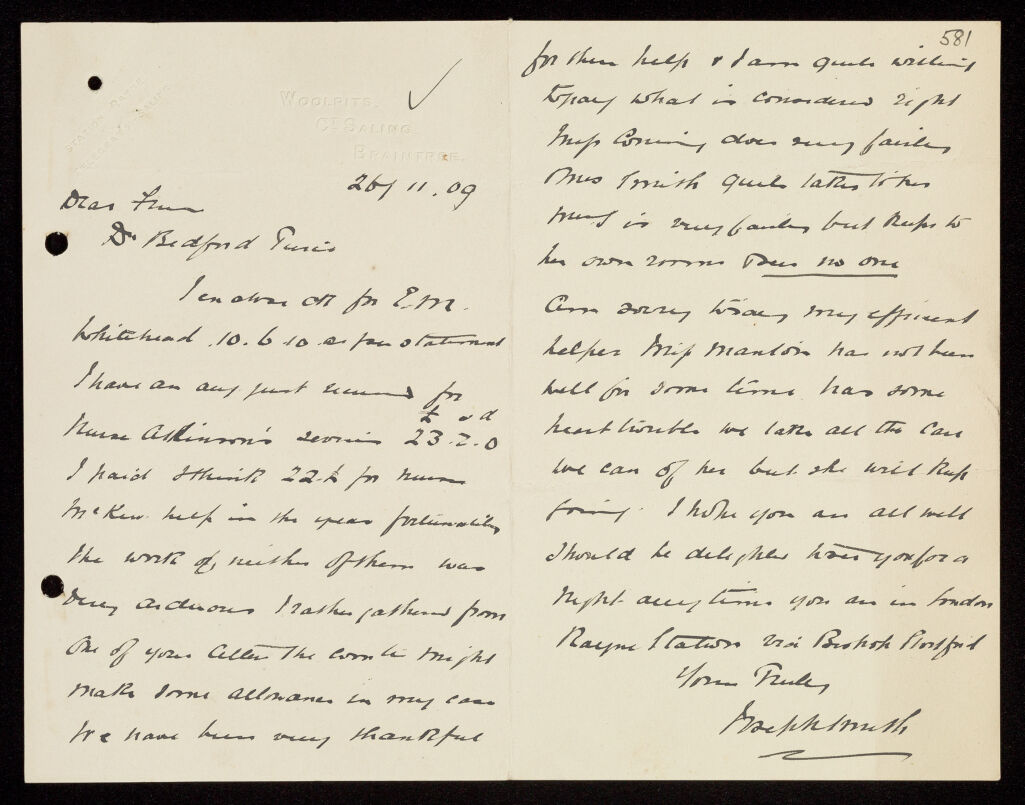 WOOLPITS.
GT SALING
BRAINTREE.
26/11.09
Dear
Dr Bedford Pierce
I enclose ch for E.M.
Whitehead .10.6.10 as per statement
I have an any just received for
£ s d
Nurse Atkinson's services 23.2.0
I paid I think 22 £ for Nurse
McKew help in the year fortunately
the work of neither of them was
very arduous I rather gathered from
one of your letter the comte might
make some allowance in my case
We have been very thankful
581
for their help & I am quite willing
to pay what is considered right
Miss does very fairly
Mrs Smith quite takes to her
is very fairly but keeps to
her own rooms & sees no one
Am sorry to say my efficient
helper Miss Manton has not been
well for some time has some
heart trouble we take all the care
we can of her but she will keep
going. I hope you are all well
Should be delighted to see you for a
night any time you are in London
Rayne Station via Bishop Stortford
Yours Truly
Joseph Smith